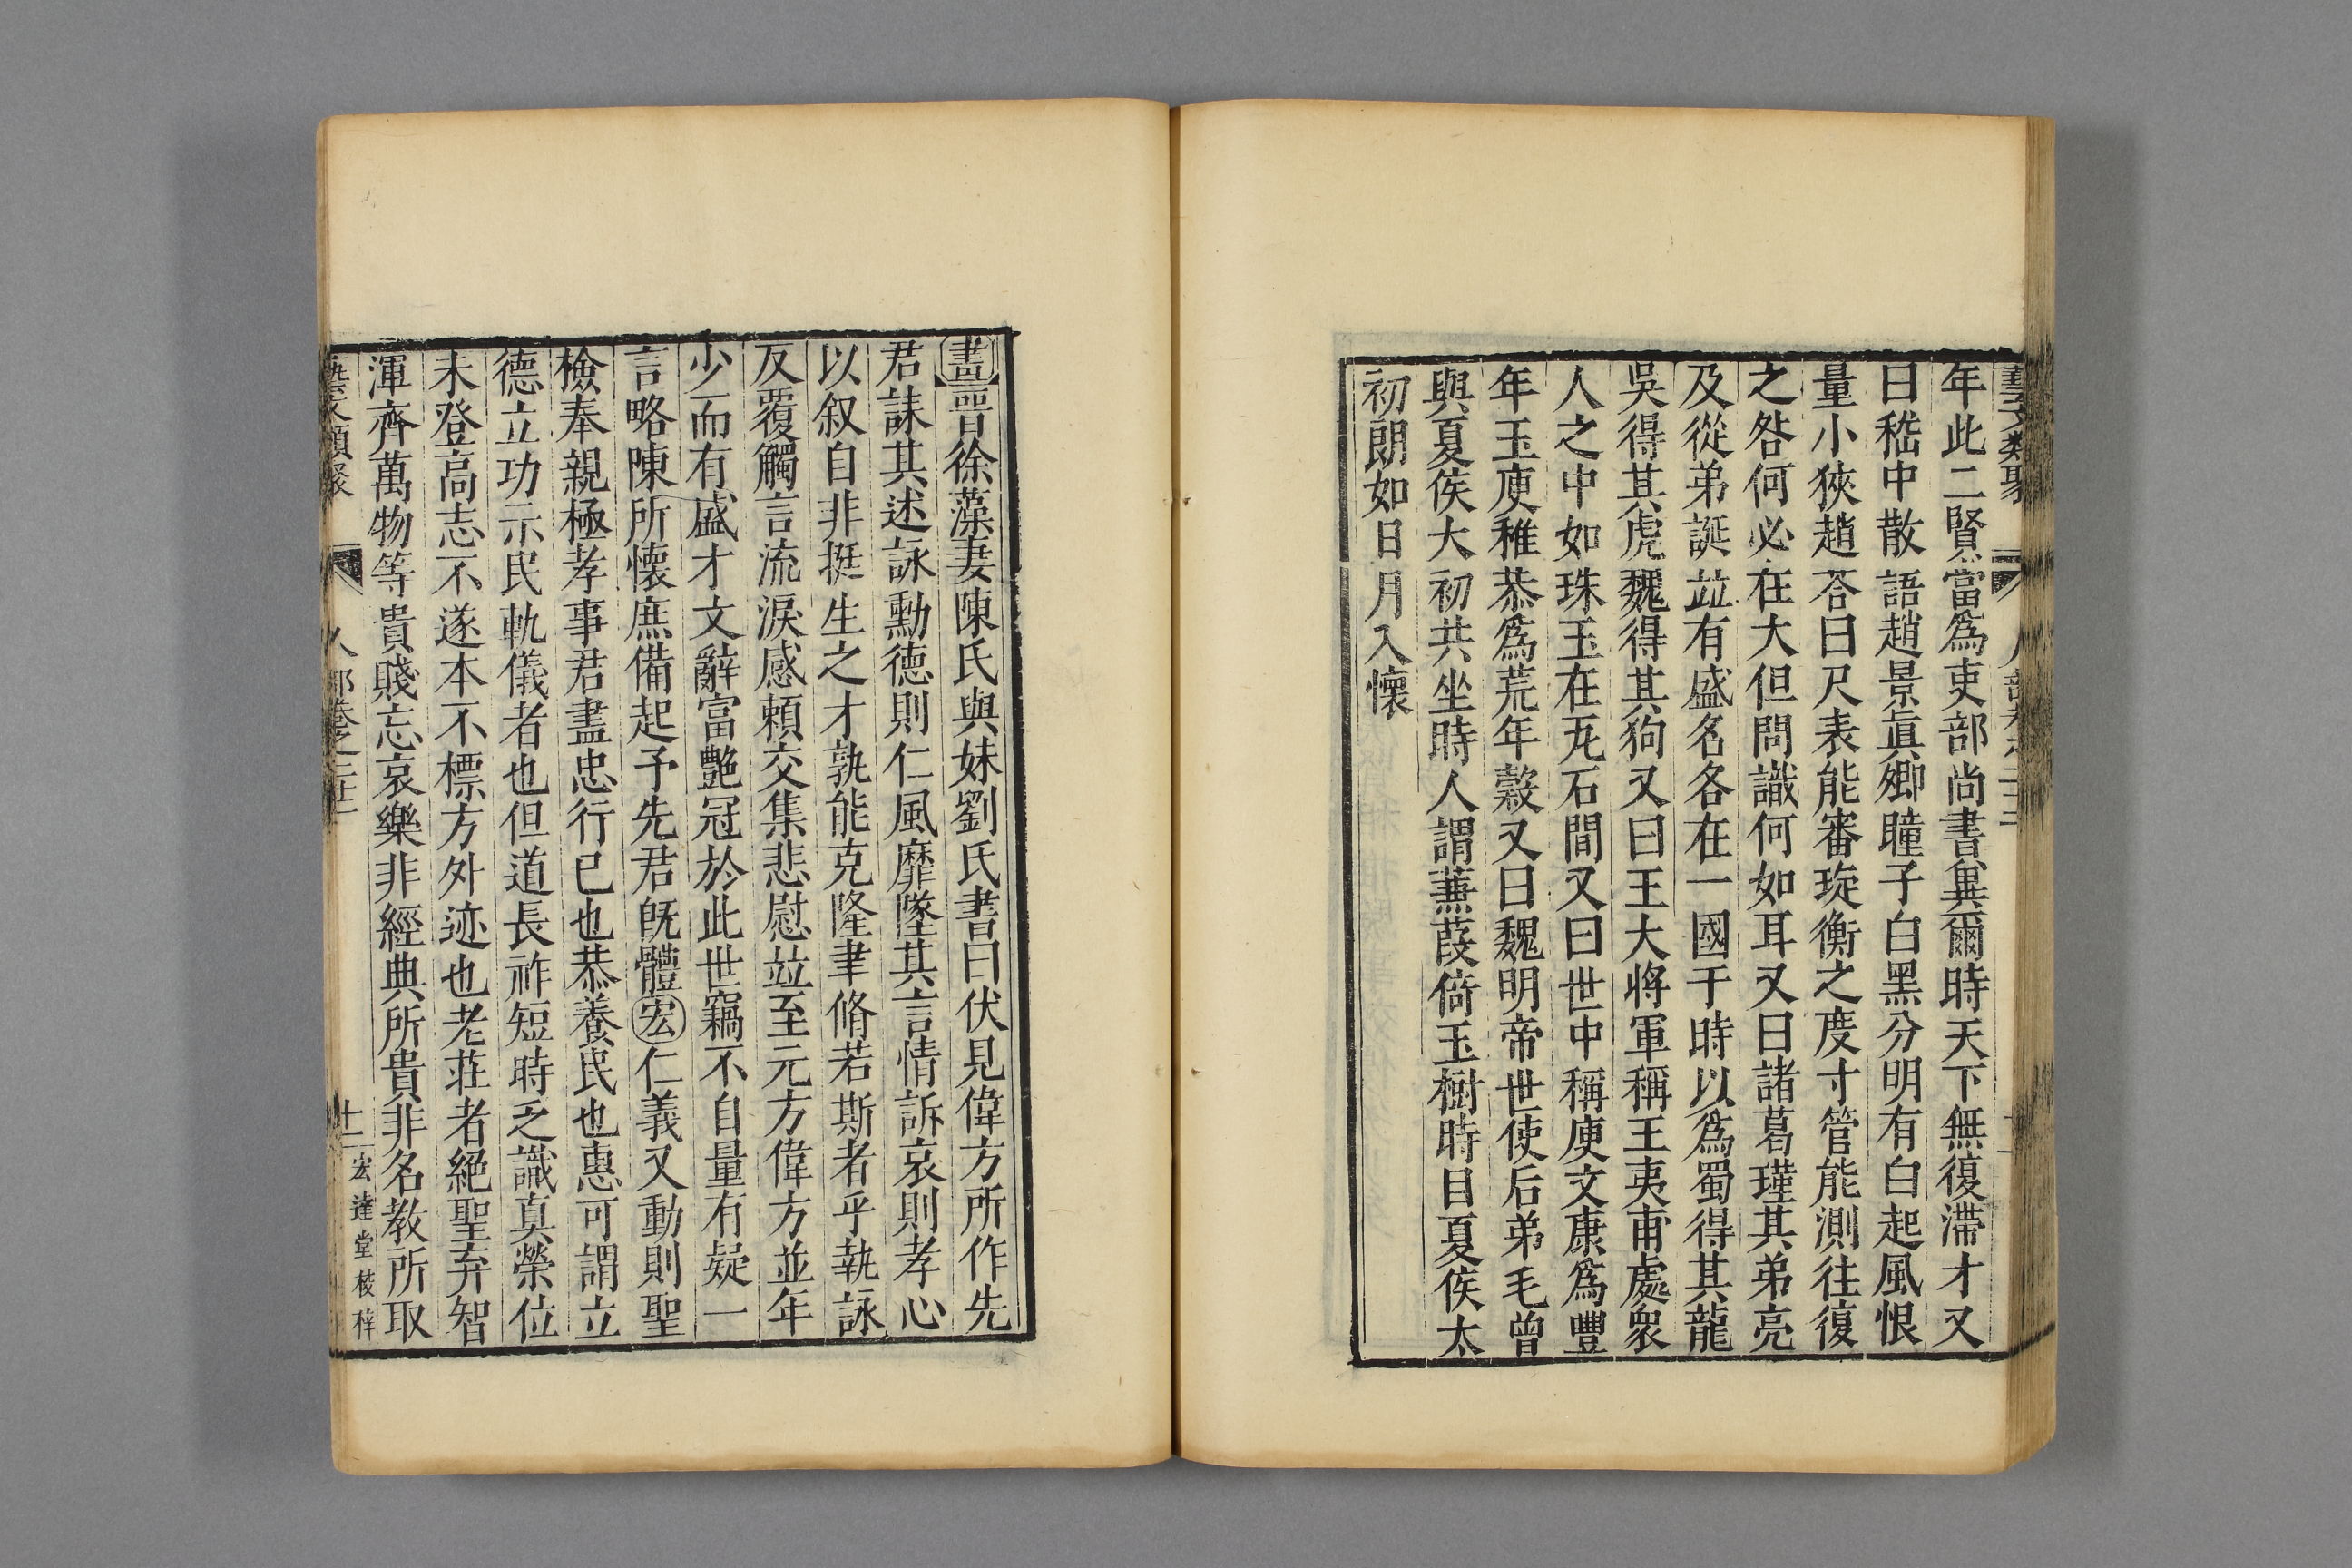 年此二賢當爲吏部尚書兾爾時天下無復滯才又
曰嵇中散語趙景眞卿瞳子白黑分明有白起風恨
量小狹趙荅曰尺表能審琁衡之度寸管能測往復
之咎何必在大但問識何如耳又曰諸葛瑾其弟亮
及從弟誕竝有盛名各在一國于時以爲蜀得其龍
吳得其虎魏得其狗又曰王大將軍稱王夷甫處衆
人之中如珠玉在瓦石間又曰世中稱庾文康爲豐
年玉庾稚恭爲荒年穀又曰魏明帝世使后弟毛曾
與夏侯大初共坐時人謂蒹葭倚玉樹時目夏侯太
初朗如日月入懷
書晉徐藻妻陳氏與妹劉氏書曰伏見偉方所作先
君誄其述詠勳德則仁風靡墜其言情訴哀則孝心
以叙自非挺生之才孰能克隆聿脩若斯者乎執詠
反覆觸言流淚感賴交集悲慰竝至元方偉方並年
少而有盛才文辭富艶冠於此世竊不自量有疑一
言略陳所懷庶備起予先君旣體宏仁義又動則聖
檢奉親極孝事君盡忠行已也恭養民也惠可謂立
德立功示民軌儀者也但道長祚短時乏識真榮位
未登高志不遂本不標方外迹也老莊者絕聖弃智
渾齊萬物等貴賤忘哀樂非經典所貴非名教所取
藝文類聚 人部卷之二十三 十二 宏達堂校梓